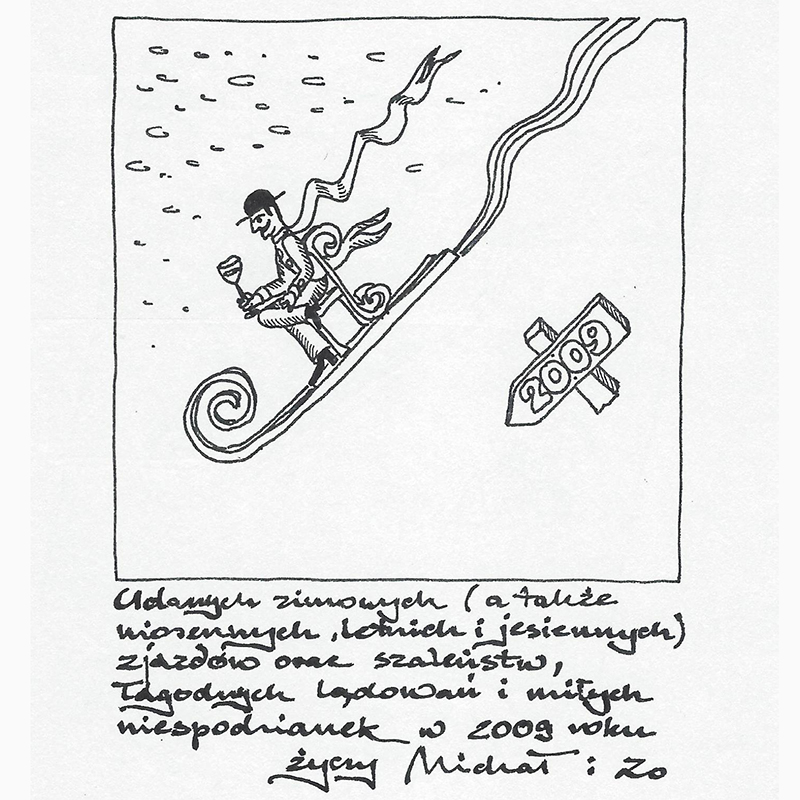 2009
Udanych zimowych (a także
wiosennych, letnich i jesiennych)
zjazdów oraz szaleństw,
łagodnych lądowań i miłych
niespodzianek w 2009 roku
życzy Michał i Zo